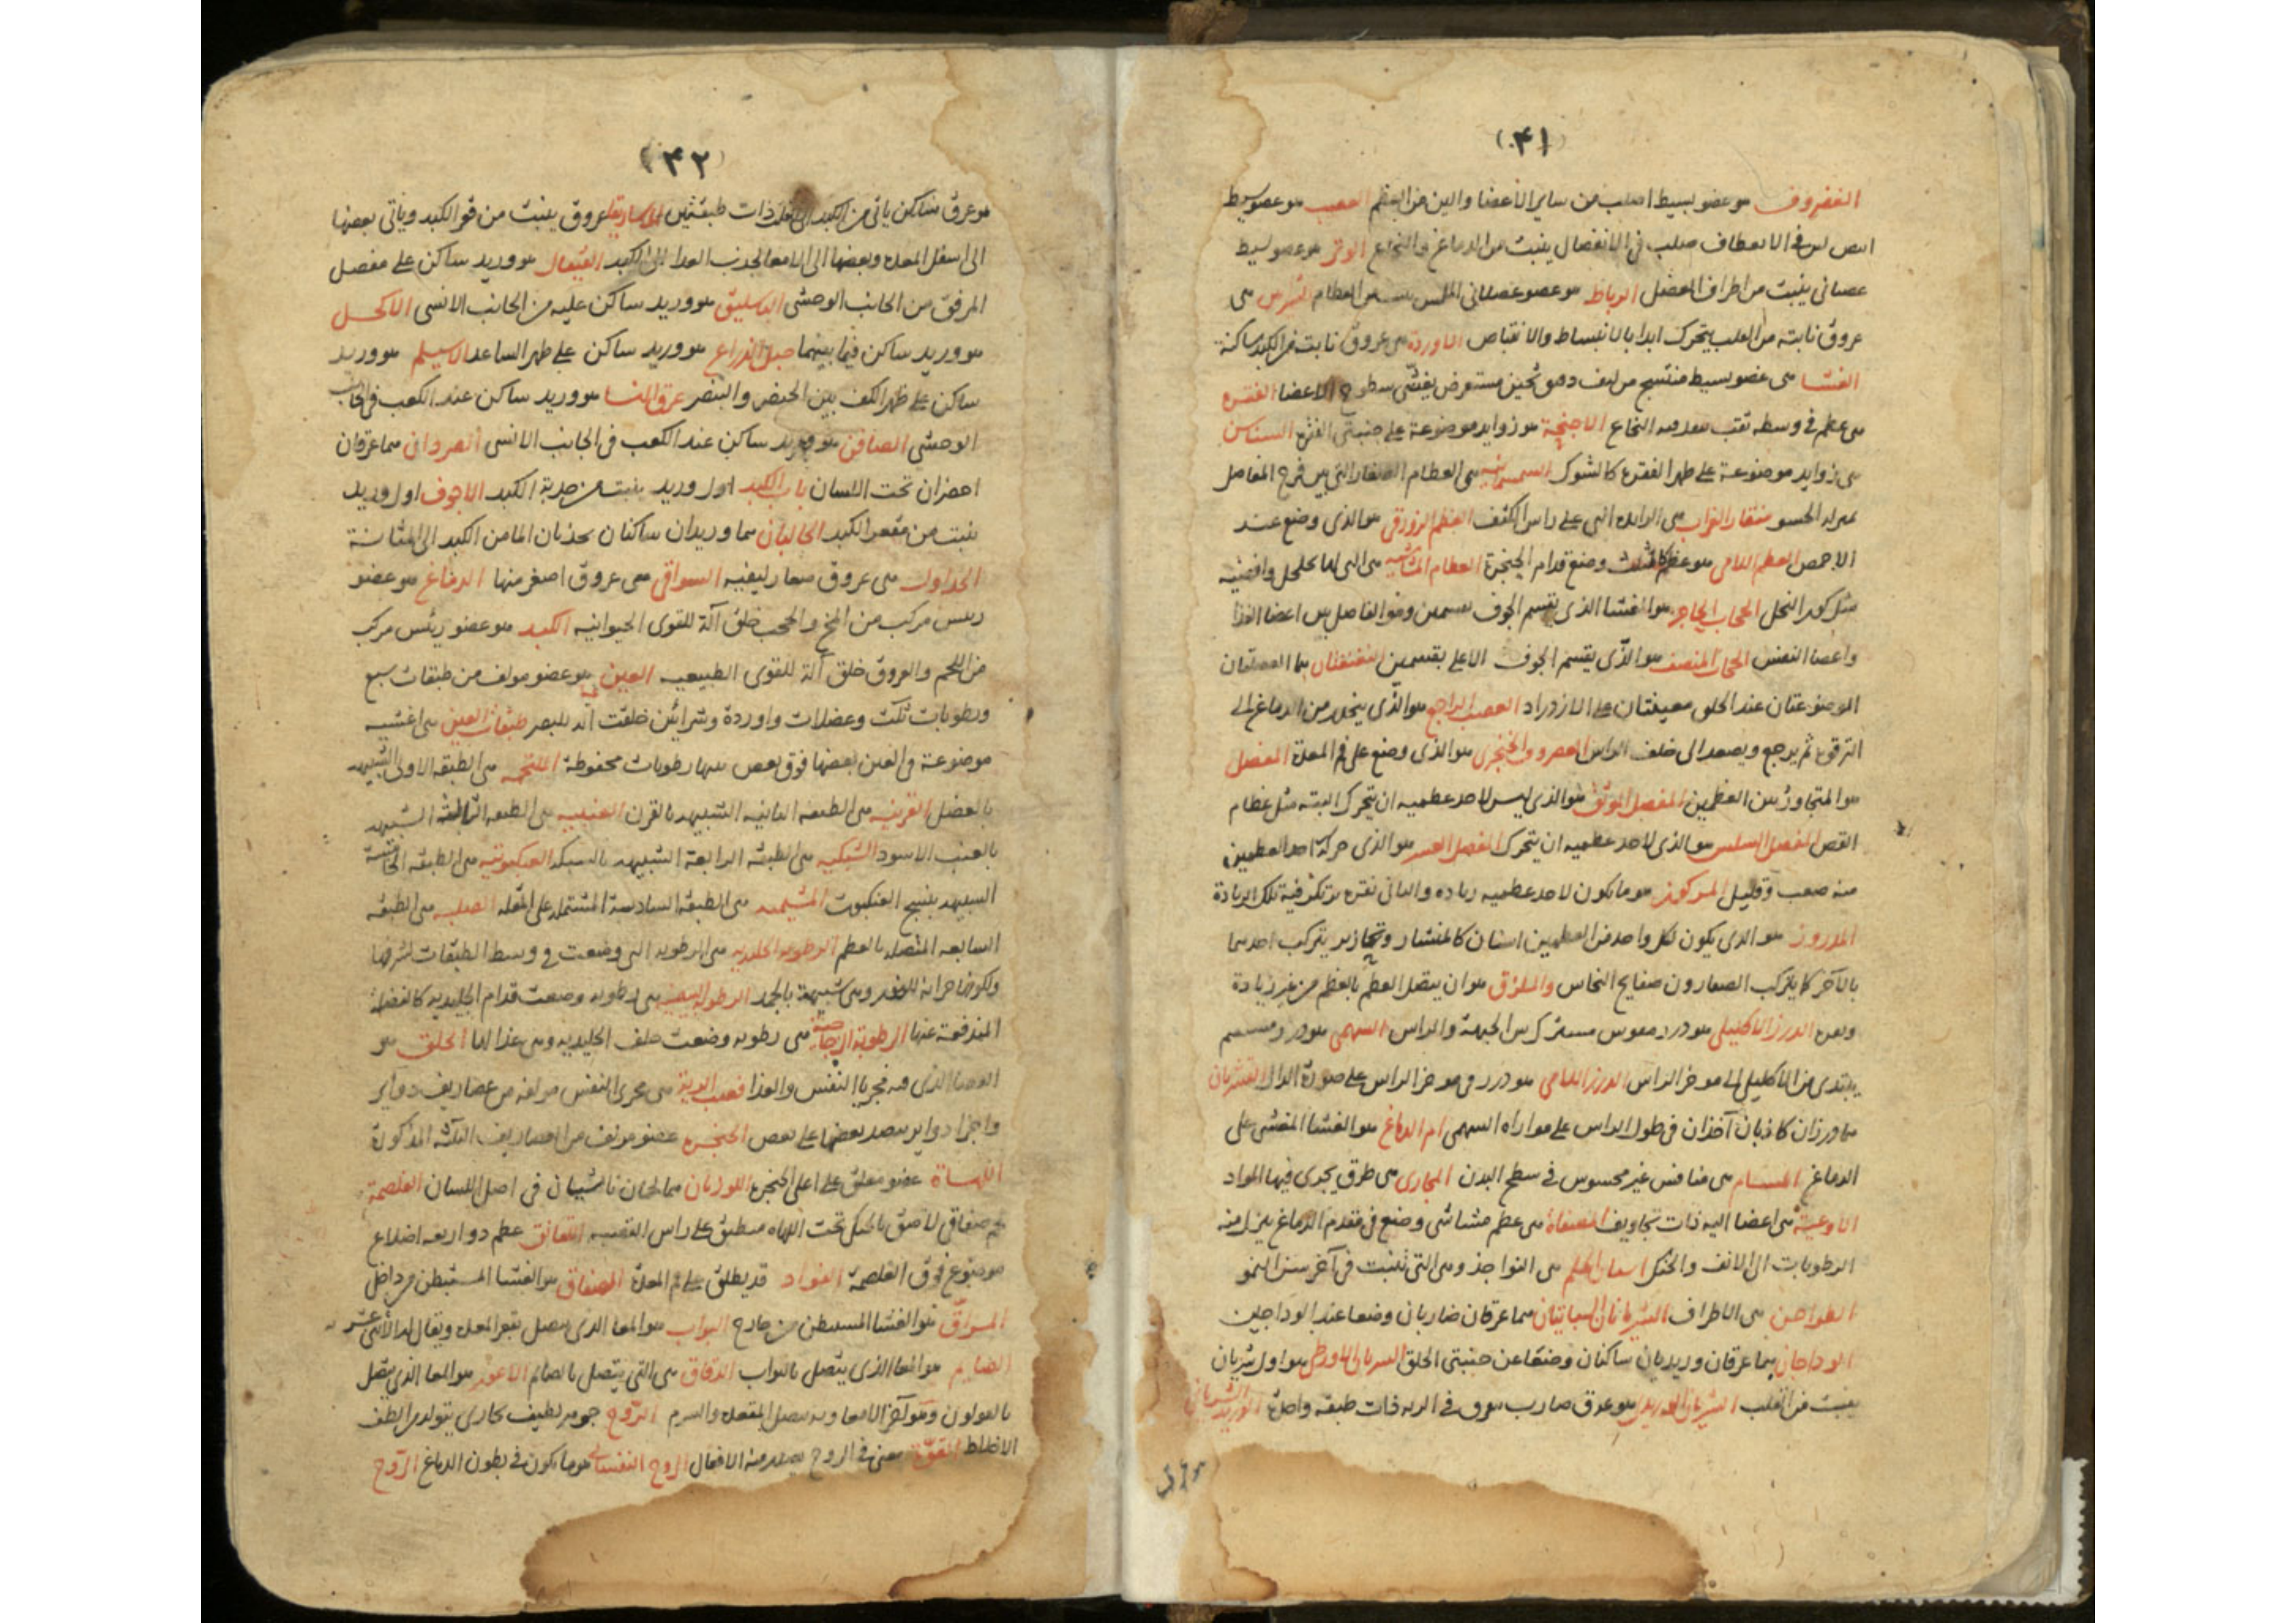 (۴۱)
الغضروف هو عضو بسيط اصلب من ساير الأعضا والين من العظم العصب هو عضو بسيط
ابيض لين في الانعطاف صلب في الانفصال ينبت من الدماغ والنخاع الوتر هو عضو بسيط
عصبانى ينبت من اطراف العضل الرباط هو عضو عصبانى من العظام الشرايين هى
عروق نابتة من القلب يتحرك ابدا بالانبساط والانقباض الاوردة هى عروق نابت من الكبد ساكنة
الغشا هى عضو بسيط منتسج من ليف دقيق ثخين مستعرض يغشى سطوح الاعضا الفقرة
هى عظم فى وسطه ثقب ينفذ فيه النخاع الاجنحة هو زوايد موضوعة على جنبتى الفقرة السناسن
هى زوايد موضوعة على ظهر الفقرة كالشوك السمسمانيه هى العظام الصغار التى بين فرج المفاصل
بمنزلة الحشو منقار الغراب هى الزايده التى على راس الكتف العظم الزورقى هو الذى وضع عند
الاخمص العظم اللامى هو عظم كالمثلث وضع قدام الحنجرة العظام المشاشيه هى التى لها تخلخل وافضيه
مثل كور النحل الحجاب الحاجز هو الغشا الذى يقسم الجوف بقسمين وهو الفاصل بين اعضا الغذا
واعضا النفس الحجاب المنصف هو الذى يقسم الجوف الاعلى بقسمين النغنغتان هما العضلتان
الموضوعتان عند الحلق معينتان على الازدراد العصب الراجع هو الذى ينحدر من الدماغ الى
الترقوة ثم يرجع ويصعد الى خلف الراس الغضروف الخنجرى هو الذى وضع على فم المعدة المفصل
هو المتجاوز بين العظمين المفصل الموثق هو الذى ليس لاحد عظميه ان يتحرك البته مثل عظام
القص المفصل السلس هو الذى لاحد عظميه ان يتحرك المفصل العسر هو الذى حركة احد العظمين
منه صعب وقليل المركوز هو ما يكون لاحد عظميه زياده والثانى نقره ترتكز فيه تلك الزيادة
المدروز هو الذى يكون لكل واحد من العظمين اسنان كالمنشار وتحازيز يتركب احدهما
بالآخر كما يتركب الصفارون صفايح النحاس والملزق هو ان يتصل العظم بالعظم من غير زيادة
ونقرة الدرز الاكليلى هو درز مقوس مشترك بين الجبهة والراس السهمى هو درز مستقيم
يبتدى من الاكليل الى موخر الراس الدرز اللامى هو درز فى موخر الراس على صورة الدال القشريان
هما درزان كاذبان آخذان فى طول الراس على موازاة السهمى ام الدماغ هو الغشا المغشى على
الدماغ المسام هى منافس غير محسوس فى سطح البدن المجارى هى طرق يجرى فيها المواد
الاوعية هى اعضا اليه ذات تجاويف المصفاة هى عظم مشاشى وضع فى مقدم الدماغ ينزل منه
الرطوبات الى الانف والحنك اسنان الحلم هى النواجذ وهى التى تنبت فى آخر سن النمو
الطواحن هى الاطراف الشريانان السباتيان هما عرقان ضاربان وضعا عند الوداجين
الوداجان هما عرقان وريديان ساكنان وضعا عن جنبتى الحلق الشريان الاورطى هو اول شريان
ينبت من القلب الشريان الوريدى هو عرق ضارب هوف فى الريه ذات طبقه واحدة الوريد الشريانى
هو عرق
(۴۲)
هو عرق ساكن ياتى من الكبد الى القلب ذات طبقتين الماساريقا عروق ينبت من قعر الكبد وياتى بعضها
الى اسفل المعده وبعضها الى الامعا لجذب الغذا الى الكبد القيفال هو وريد ساكن على مفصل
المرفق من الجانب الوحشى الباسليق هو وريد ساكن عليه من الجانب الانسى الاكحل
هو وريد ساكن فيما بينهما حبل الذراع هو وريد ساكن على ظهر الساعد الاسيلم هو وريد
ساكن على ظهر الكف بين الخنصر والبنصر عرق النسا هو وريد ساكن عند الكعب فى الجانب
الوحشى الصافن هو وريد ساكن عند الكعب فى الجانب الانسى الصردان هما عرقان
اخضران تحت اللسان باب الكبد اول وريد ينبت من حدبة الكبد الاجوف اول وريد
ينبت من مقعر الكبد الحالبان هما وريدان ساكنان يجذبان الما من الكبد الى المثانة
الجداول هى عروق صغار ليفيه السواقى هى عروق اصغر منها الدماغ هو عضو
رييس مركب من المخ والحجب خلق آلة للقوى الحيوانيه الكبد هو عضو رئيس مركب
من اللحم والعروق خلق آلة للقوى الطبيعيه العين هو عضو مولف من طبقات سبع
ورطوبات ثلث وعضلات واوردة وشرائين خلقت آلة للبصر طبقات العين هى اغشيه
موضوعة فى العين بعضها فوق بعض بينها رطوبات محفوظة الملتحمه هى الطبقه الاولى الشبيهه
بالعضل القرنيه هى الطبقه الثانيه الشبيهه بالقرن العنبيه هى الطبقه الثالثة الشبيهه
بالعنب الاسود الشبكيه هى الطبقة الرابعة الشبيهه بالشبكه العنكبوتيه هى الطبقه الخامسة
الشبيهه بنسج العنكبوت المشيميه هى الطبقة السادسة المشتمله على المقله الصلبه هى الطبقه
السابعه المتصله بالعظم الرطوبه الجليديه هى الرطوبه التى وضعت فى وسط الطبقات لشرفها
ولكونها خزانة للنور وهى شبيهة بالجمد الرطوبة البيضيه هى رطوبه وضعت قدام الجليديه كالفضلة
المندفعة عنها الرطوبة الزجاجية هى رطوبه وضعت خلف الجليديه وهى غذا لها الحلق هو
الفضا الذى فيه مجريا النفس والغذا قصب الرية هى مجرى النفس مولفه من غضاريف دواير
واجزا دواير متصل بعضها على بعض الحنجرة عضو مولف من الغضاريف الثلثة المذكورة
اللهاة عضو معلق على اعلى الحنجرة اللوزتان هما لحمتان ناشيتان فى اصل اللسان الغلصمة
لحم صفاقى لاصق بالحنك تحت اللهاة منطبق على راس القصبه الفائق عظم ذو اربعه اضلاع
موضوع فوق الغلصمة الفواد قد يطلق على فم المعدة الصفاق هو الغشا المستبطن من داخل
المراق هو الغشا المستبطن من خارج البواب هو المعا الذى متصل بقعر المعده ويقال لها الاثنى عشر
الصايم هو المعا الذى يتصل بالبواب الدقاق هى التى يتصل بالصايم الاعور هو المعا الذى يتصل
بالقولون وهو آخر الامعا وبه متصل المقعده والسرم الروح جوهر لطيف بخارى يتولد من الطف
الاخلاط القوة معنى فى الروح يصدر منه الافعال الروح النفسانى هو ما يكون فى بطون الدماغ الروح